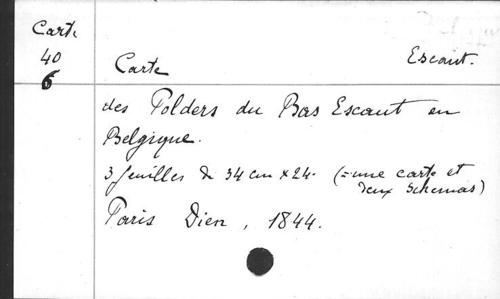 Carte
40
6
Escaut.
Carte
des Polders du Bas Escaut en
Belgique.
3 feuilles de 34 cm x 24. (= une carte et
deux schemas)
Paris Dien, 1844.